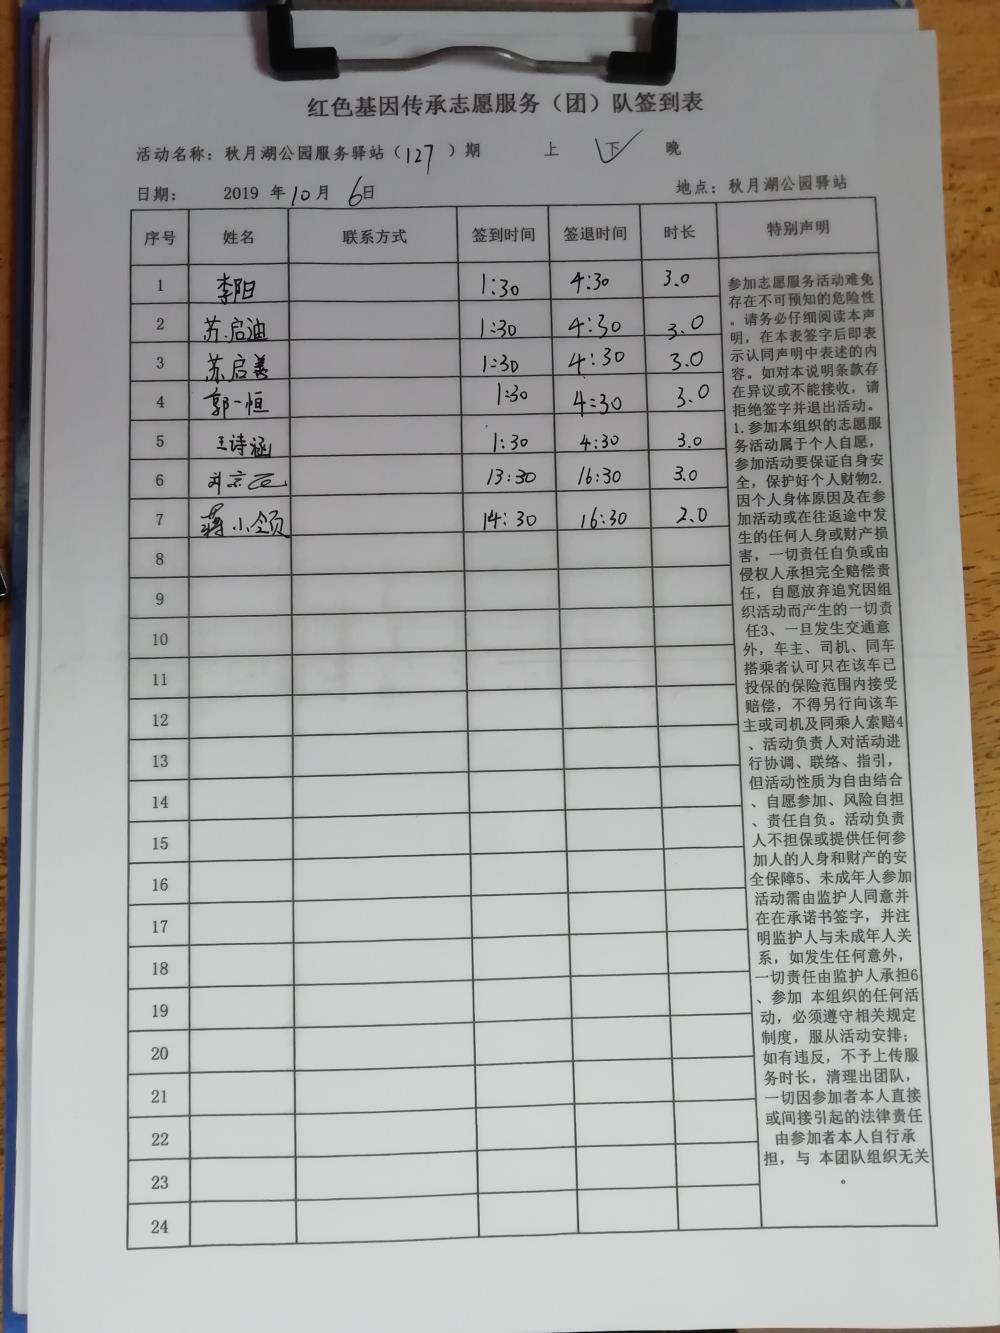 红色基因传承志愿服务（团）队签到表
活动名称：秋月湖公园服务驿站（127）期 上 下 晚
日期： 2019 年10月 6日 地点：秋月湖公园驿站
序号 姓名 联系方式 签到时间 签退时间 时长 特别声明
1 李阳 1:30 4:30 3.0
2 苏启迪 1:30 4:30 3.0
3 苏启善 1:30 4:30 3.0
4 郭一恒 1:30 4:30 3.0
5 王诗涵 1:30 4:30 3.0
6 13:30 16:30 3.0
7 蒋小颂 14:30 16:30 2.0
8
9
10
11
12
13
14
15
16
17
18
19
20
21
22
23
24
参加志愿服务活动难免
存在不可预知的危险性
。请务必仔细阅读本声
明，在本表签字后即表
示认同声明中表述的内
容。如对本说明条款存
在异议或不能接收，请
拒绝签字并退出活动。
1.参加本组织的志愿服
务活动属于个人自愿，
参加活动要保证自身安
全，保护好个人财物2.
因个人身体原因及在参
加活动或在往返途中发
生的任何人身或财产损
害，一切责任自负或由
侵权人承担完全赔偿责
任，自愿放弃追究因组
织活动而产生的一切责
任3、一旦发生交通意
外，车主、司机、同车
搭乘者认可只在该车已
投保的保险范围内接受
赔偿，不得另行向该车
主或司机及同乘人索赔4
、活动负责人对活动进
行协调、联络、指引，
但活动性质为自由结合
、自愿参加、风险自担
、责任自负。活动负责
人不担保或提供任何参
加人的人身和财产的安
全保障5、未成年人参加
活动需由监护人同意并
在在承诺书签字，并注
明监护人与未成年人关
系，如发生任何意外，
一切责任由监护人承担6
、参加 本组织的任何活
动，必须遵守相关规定
制度，服从活动安排；
如有违反，不予上传服
务时长，清理出团队，
一切因参加者本人直接
或间接引起的法律责任
由参加者本人自行承
担，与 本团队组织无关
。